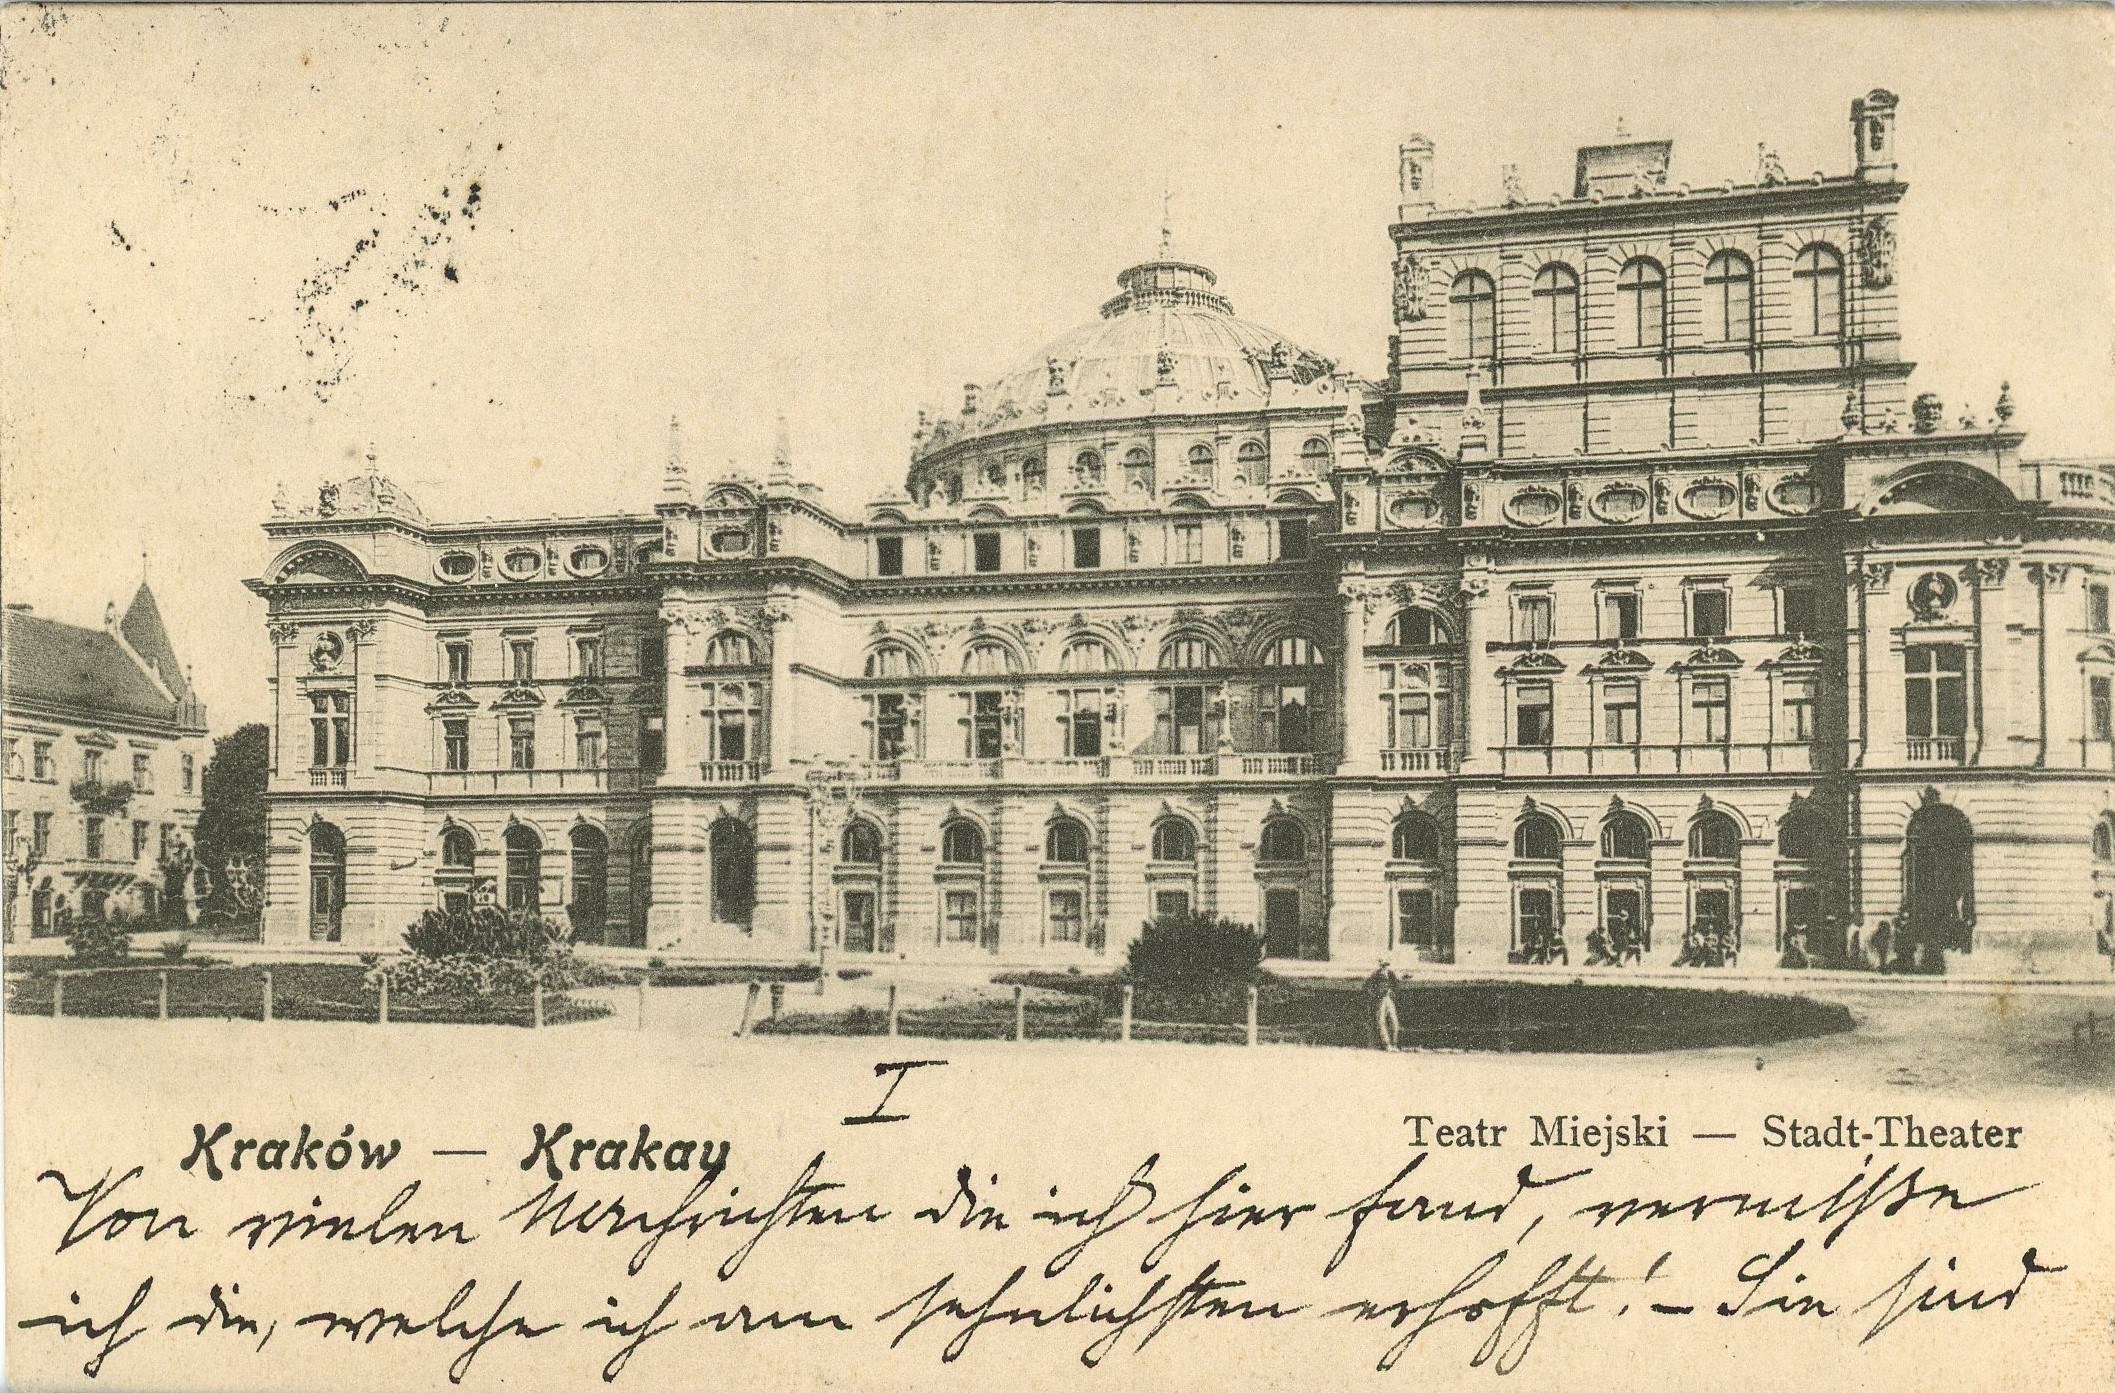 I
Kraków — Krakau
Teatr Miejski — Stadt-Theater
Von vielen Nachrichten die ich hier fand, vermiße
ich die, welche ich am sehnlichsten erhofft! – Sie sind